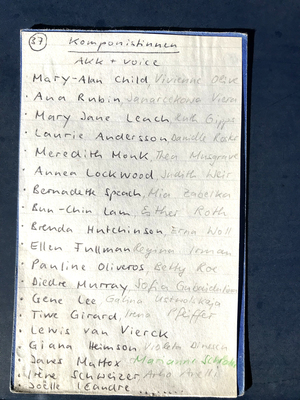 37 Komponistinnen
AKK + voice
Mary-Alan Child, Vivienne Olive
· Ana Rubin,
· Mary Jane Leach, Ruth Gipps
· Laurie Anderson, Danielle
· Meredith Monk, Thea Musgrave
· Annea Lockwood, Judith Weir
· Bernadette Speach, Mia Zabelka
· Bun-Chin Lam, Esther Roth
· Brenda Hutchinson, Erna Woll
· Ellen Fullman, Regina Irman
· Pauline Oliveros, Betty Roe
· Diedre Murray, Sofia Gubaidulina
· Gene Lee, Galina Ustwolskaja
· Tiwe Girard, Irena Pfeiffer
· Lewis van Vierck
· Giana Heimson, Violeta Dinescu
· James Mattox Marianne
· Irene Schweizer,
· Joëlle Leandre ......